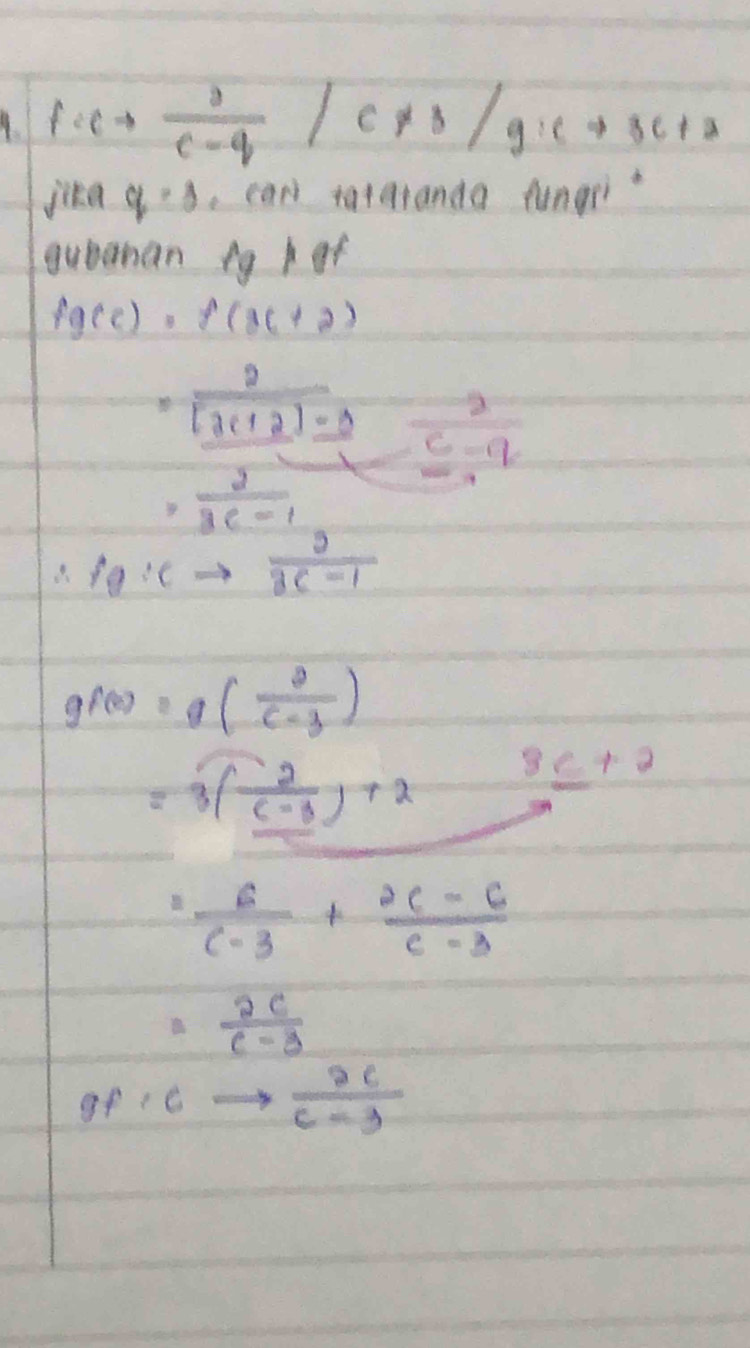 f : c → 2/(c - q) / c ≠ 3 / g : c → 3c + 2
jika q = 3, cari tatatanda fungsi
gubahan fg & gf
fg(c) = f(3c + 2)
= 2/([3c + 2] - 3) 2/(c - q)
= 2/(3c - 1)
∴ fg : c → 2/(3c - 1)
= g(2/(c - 3))
= 3(2/(c - 3)) + 2 3c + 2
= 6/(c - 3) + (2c - 6)/(c - 3)
= 2c/(c - 3)
gf : c → 2c/(c - 3)